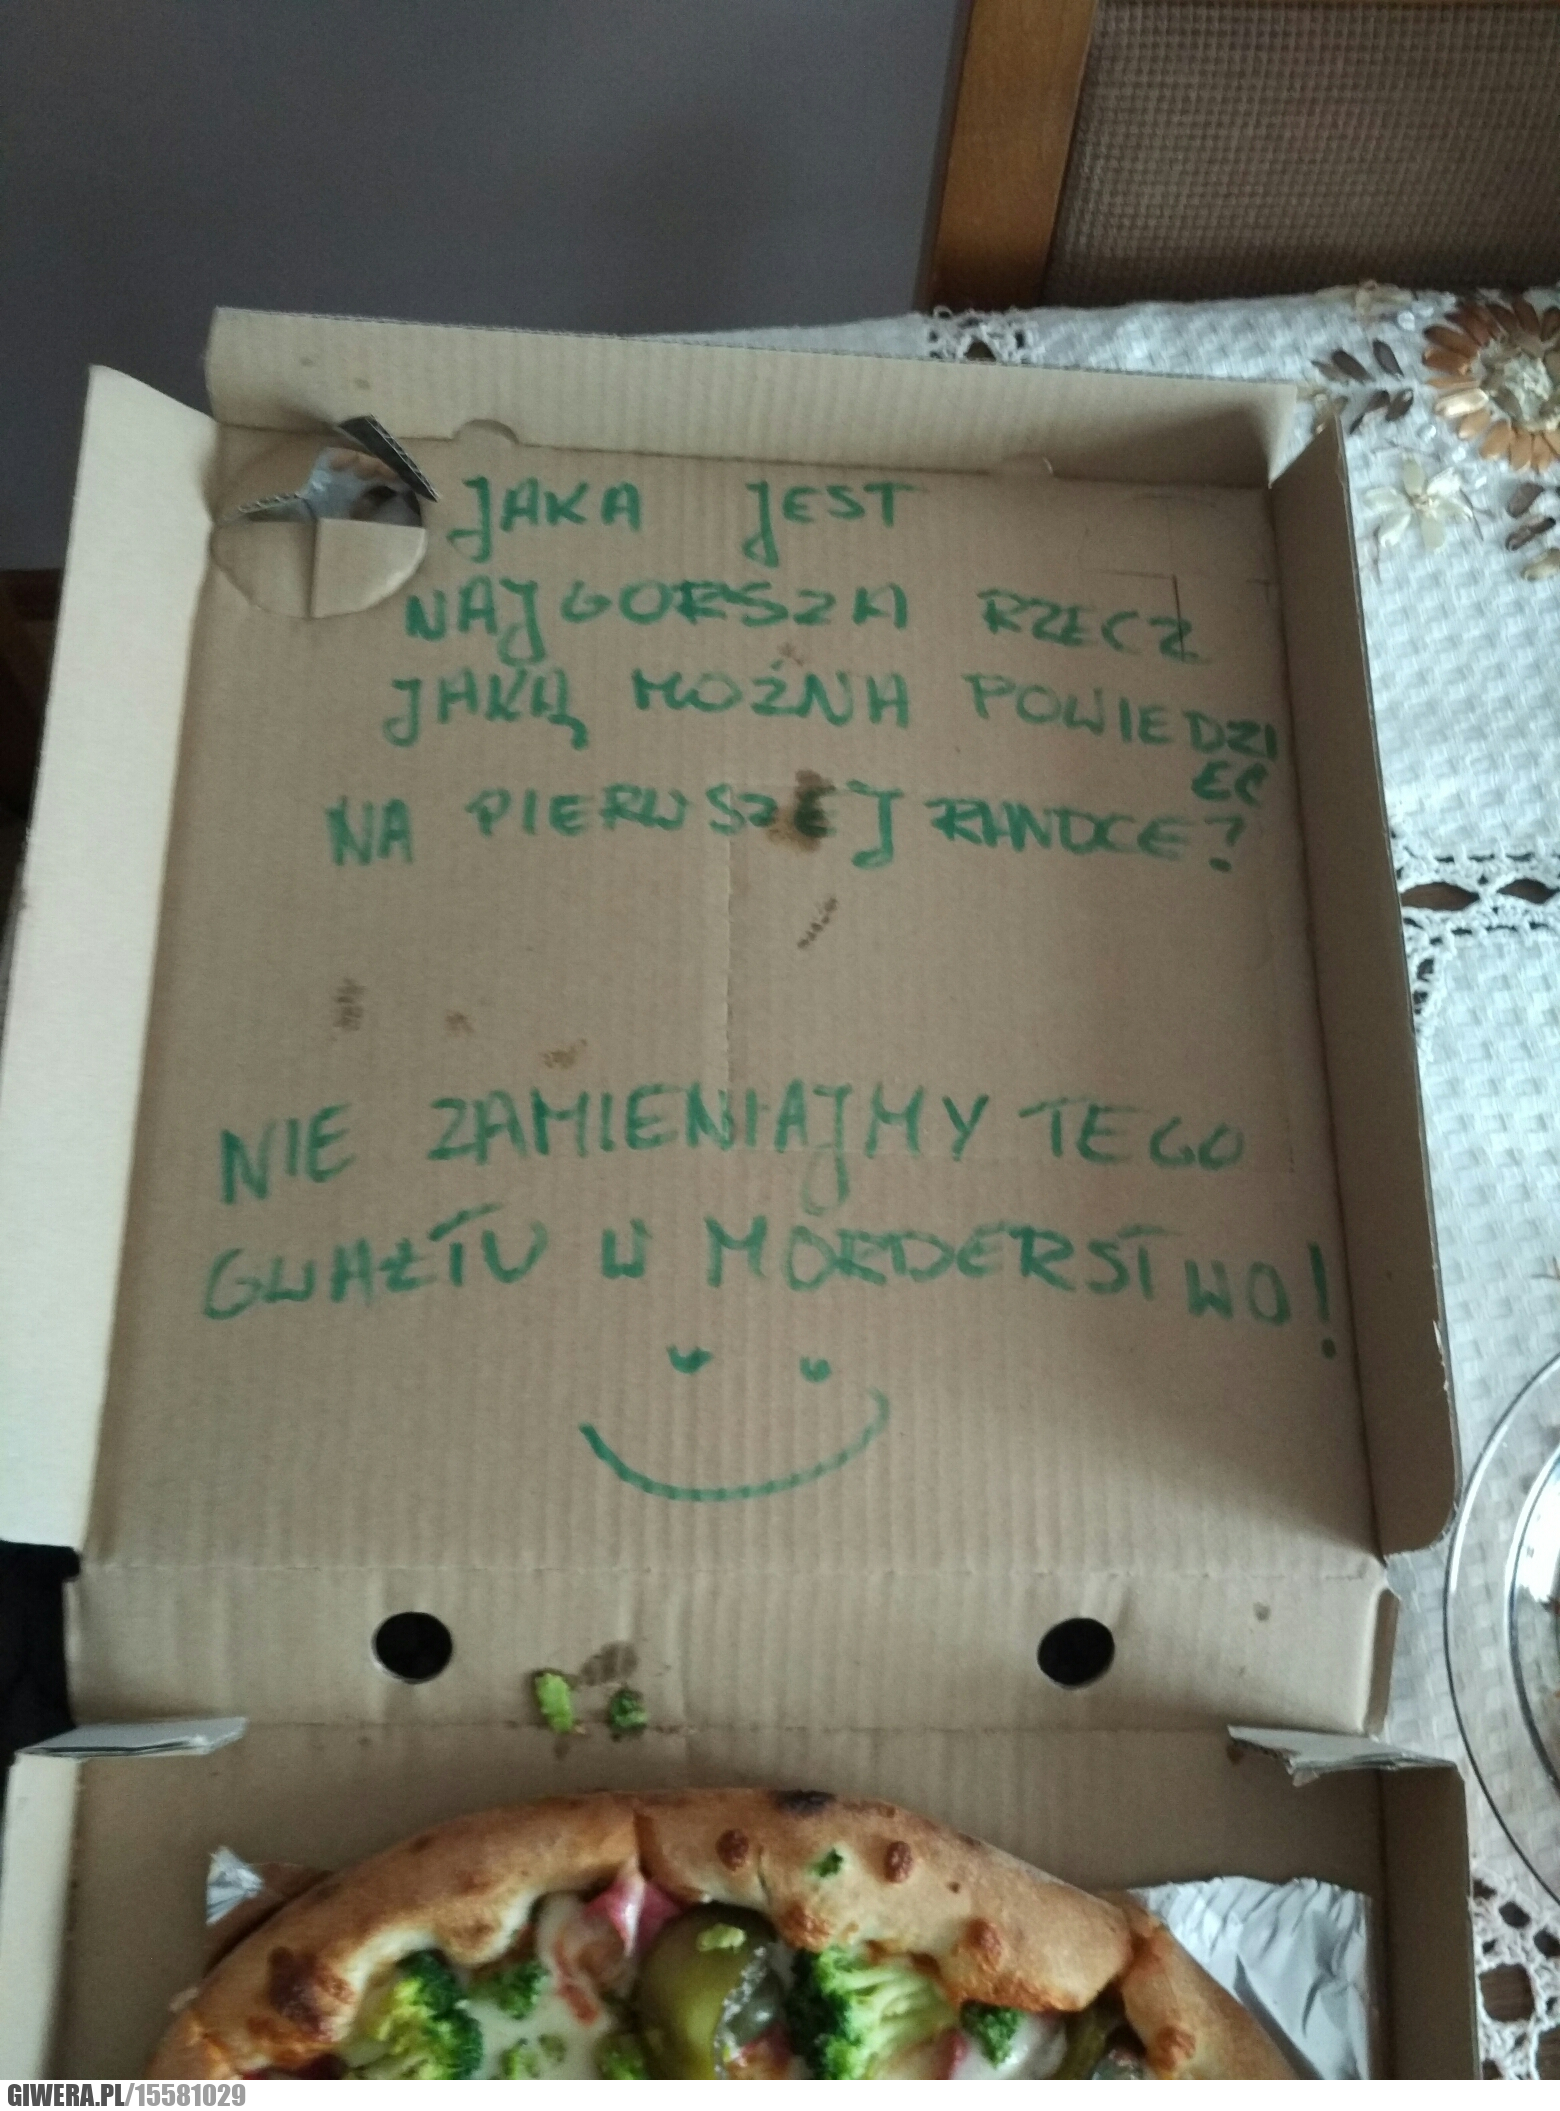 JAKA JEST
NAJGORSZA RZECZ
JAKĄ MOŻNA POWIEDZI
EC
NA PIERWSZEJ RANDCE?
NIE ZAMIENIAJMY TEGO
GWAŁTU W MORDERSTWO!
GIWERA.PL/15581029